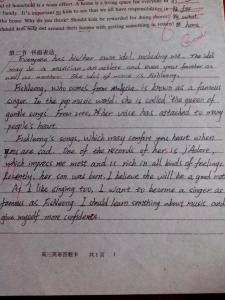 kind of household is a team effort. A home is a living space for everyone in
family. It's important to kids to see that we all have responsibilities in
the house. Why do you think? Should kids be rewarded for doing chores?
should just help out around their homes with getting something in return?
第二节 书面表达
Everyone has his/her own idol, including me. The idol
may be a musician, an athlete and even your father as
well as mother. She idol of music is Fishleong.
Fishleong, who comes from Malaysia, is known as a famous
singer. In the pop music world, she is called "the queen of
gentle songs". From now, her voice has attached to many
people's heart.
Fishleong's songs, which may comfort your heart when
you are sad. One of the records of her is J'Adore,
which impress me most and is rich in all kinds of feelings.
Recently, her son was born. I believe she will be a good mot
As I like singing too, I want to become a singer as
famous as Fishleong. I should learn something about music and
give myself more confidents.
高三英语答题卡 共1页 1